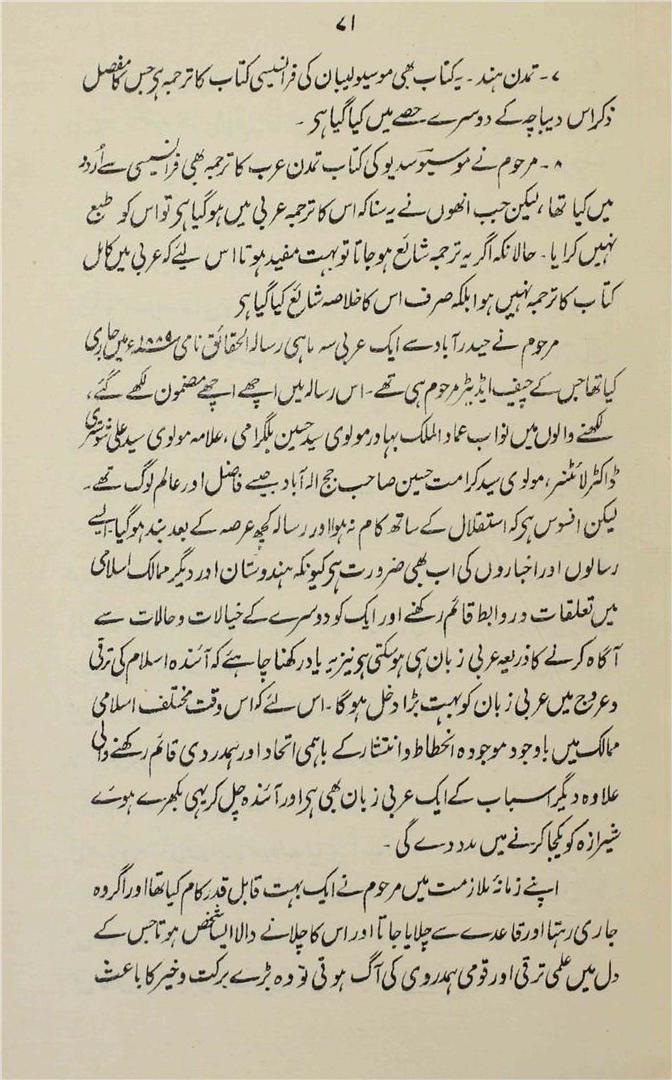 ۷۱
۷۔ تمدن ہند۔ یہ کتاب بھی موسیولیبان کی فرانسیسی کتاب کا ترجمہ ہی جس کا مفصل
ذکر اس دیباچہ کے دوسرے حصے میں کیا گیا ہی ۔
۸۔ مرحوم نے موسیو سدیو کی کتاب تمدن عرب کا ترجمہ بھی فرانسیسی سے اُردو
میں کیا تھا، لیکن جب انھوں نے یہ سنا کہ اس کا ترجمہ عربی میں ہو گیا ہی تو اس کو طبع
نہیں کرایا۔ حالانکہ اگر یہ ترجمہ شایع ہو جاتا تو بہت مفید ہوتا اس لیٔے کہ عربی میں کامل
کتاب کا ترجمہ نہیں ہوا بلکہ صرف اس کا خلاصہ شایع کیا گیا ہی
مرحوم نے حیدرآباد سے ایک عربی سہ ماہی رسالہ الحقائق نامی سنہ ۱۸۸۹ء میں جاری
کیا تھا جس کے چیف ایڈیٹر مرحوم ہی تھے۔ اس رسالہ میں اچھے اچھے مضمون لکھے گئے،
لکھنے والوں میں نواب عماد الملک بہادر مولوی سید حسین بلگرامی، علامہ مولوی سید علی شوستری
ڈاکٹر لائٹنر، مولوی سید کرامت حسین صاحب جج الہ آباد جیسے فاضل اور عالم لوگ تھے۔
لیکن افسوس ہی کہ استقلال کے ساتھ کام نہ ہوا اور رسالہ کچھ عرصہ کے بعد بند ہو گیا۔ ایسے
رسالوں اور اخباروں کی اب بھی ضرورت ہی کیونکہ ہندوستان اور دیگر ممالک اسلامی
میں تعلقات و روابط قائم رکھنے اور ایک کو دوسرے کے خیالات و حالات سے
آگاہ کرنے کا ذریعہ عربی زبان ہی ہو سکتی ہی نیز یہ یاد رکھنا چاہئے کہ آئندہ اسلام کی ترقی
و عروج میں عربی زبان کو بہت بڑا دخل ہوگا۔ اس لئے کہ اس وقت مختلف اسلامی
ممالک میں باوجود موجودہ انحطاط و انتشار کے باہمی اتحاد اور ہمدردی قائم رکھنے والی
علاوہ دیگر اسباب کے ایک عربی زبان بھی ہی اور آئندہ چل کر یہی بکھرے ہوئے
شیرازہ کو یکجا کرنے میں مدد دے گی ۔
اپنے زمانۂ ملازمت میں مرحوم نے ایک بہت قابل قدر کام کیا تھا اور اگر وہ
جاری رہتا اور قاعدے سے چلایا جاتا اور اس کا چلانے والا ایسا شخص ہوتا جس کے
دل میں علمی ترقی اور قومی ہمدردی کی آگ ہوتی تو وہ بڑے برکت و خیر کا باعث